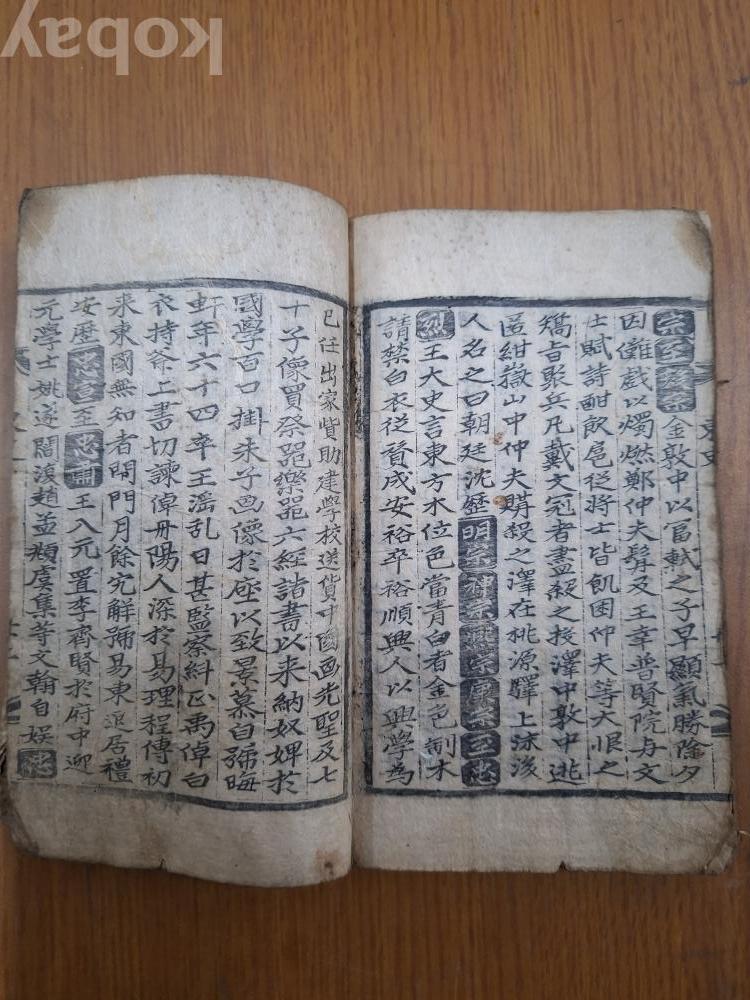 kobay
金敦中以富軾之子早顯氣勝除夕
因儺戱以燭燃鄭仲夫鬚及王幸普賢院与文
士賦詩酣飮扈從將士皆飢困仲夫等大恨之
矯旨聚兵凡戴文冠者盡殺之投澤中敦中逃
匿紺嶽山中仲夫購殺之澤在桃源驛上沫後
人名之曰朝廷沈歷明宗神宗熙宗康宗至忠
烈王大史言東方木位色當青白者金色制木
請禁白衣從贊成安裕卒裕順興人以興學爲
已任出家貲助建學校送貨中國画先聖及七
十子像買祭器樂器六經諸書以来納奴婢於
國學百口掛朱子画像於座以致景慕自號晦
軒年六十四卒王淫乱日甚監察糾正禹倬白
衣持斧上書切諫倬丹陽人深於易理程傳初
来東國無知者閉門月餘究解號易東退居禮
安歷忠宣至忠肅王入元置李齊賢於府中迎
元學士姚遂閻復趙孟頫虞集等文翰自娛忠